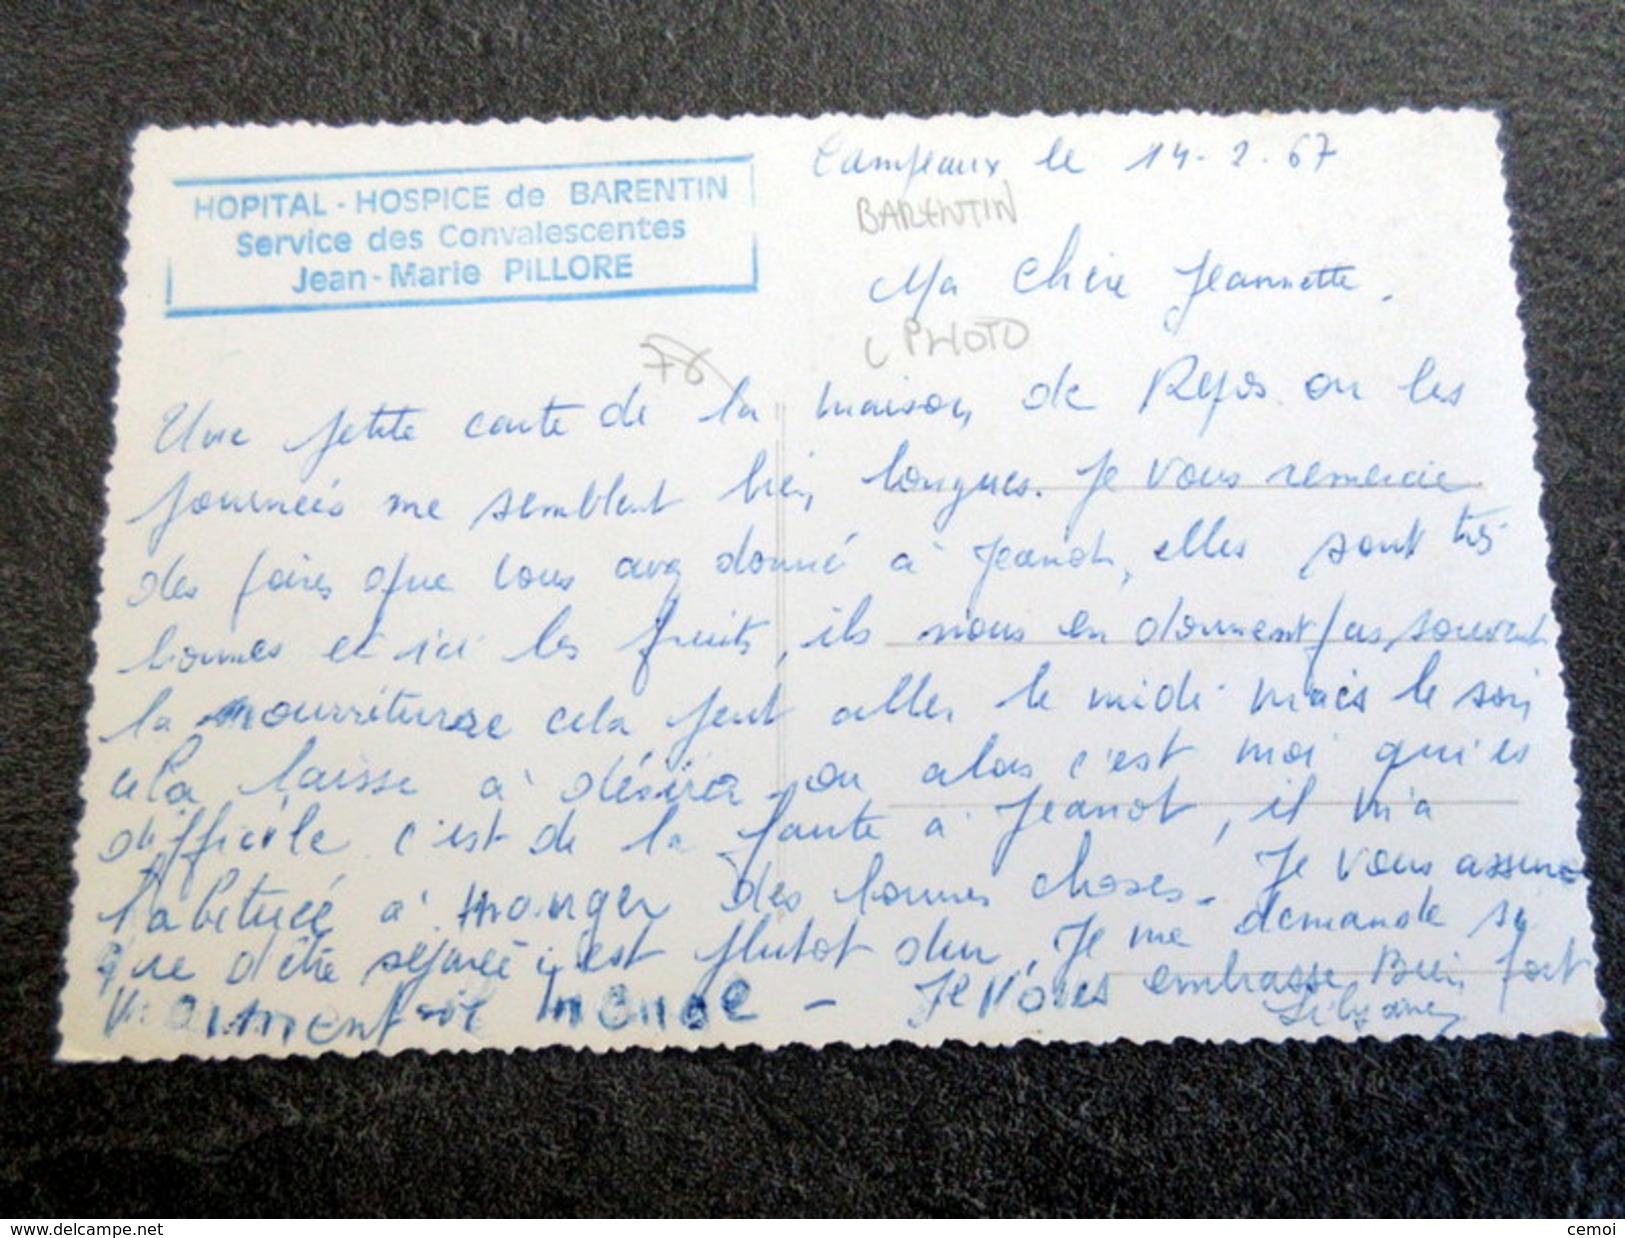 HOPITAL - HOSPICE de BARENTIN
Service des Convalescentes
Jean - Marie PILLORE
Campeaux le 14-2-67
BARENTIN
Ma Chère Jeannette.
PHOTO
Une petite carte de la maison de Repos ou les
journées me semblent bien longues. Je vous remercie
des poires que vous avez donné à Jeanot, elles sont très
bonnes et ici les fruits, ils nous en donnent pas souvent
la nourriture cela peut aller le midi mais le soir
cela laisse à désirer ou alors c'est moi qui es
difficile c'est de la faute à Jeanot, il m'a
habituée à manger des bonnes choses - Je vous assure
que d'être séparée c'est plutot dur, Je me demande si
vraiment - Je vous embrasse Bien fort
delcampe.net
cemoi